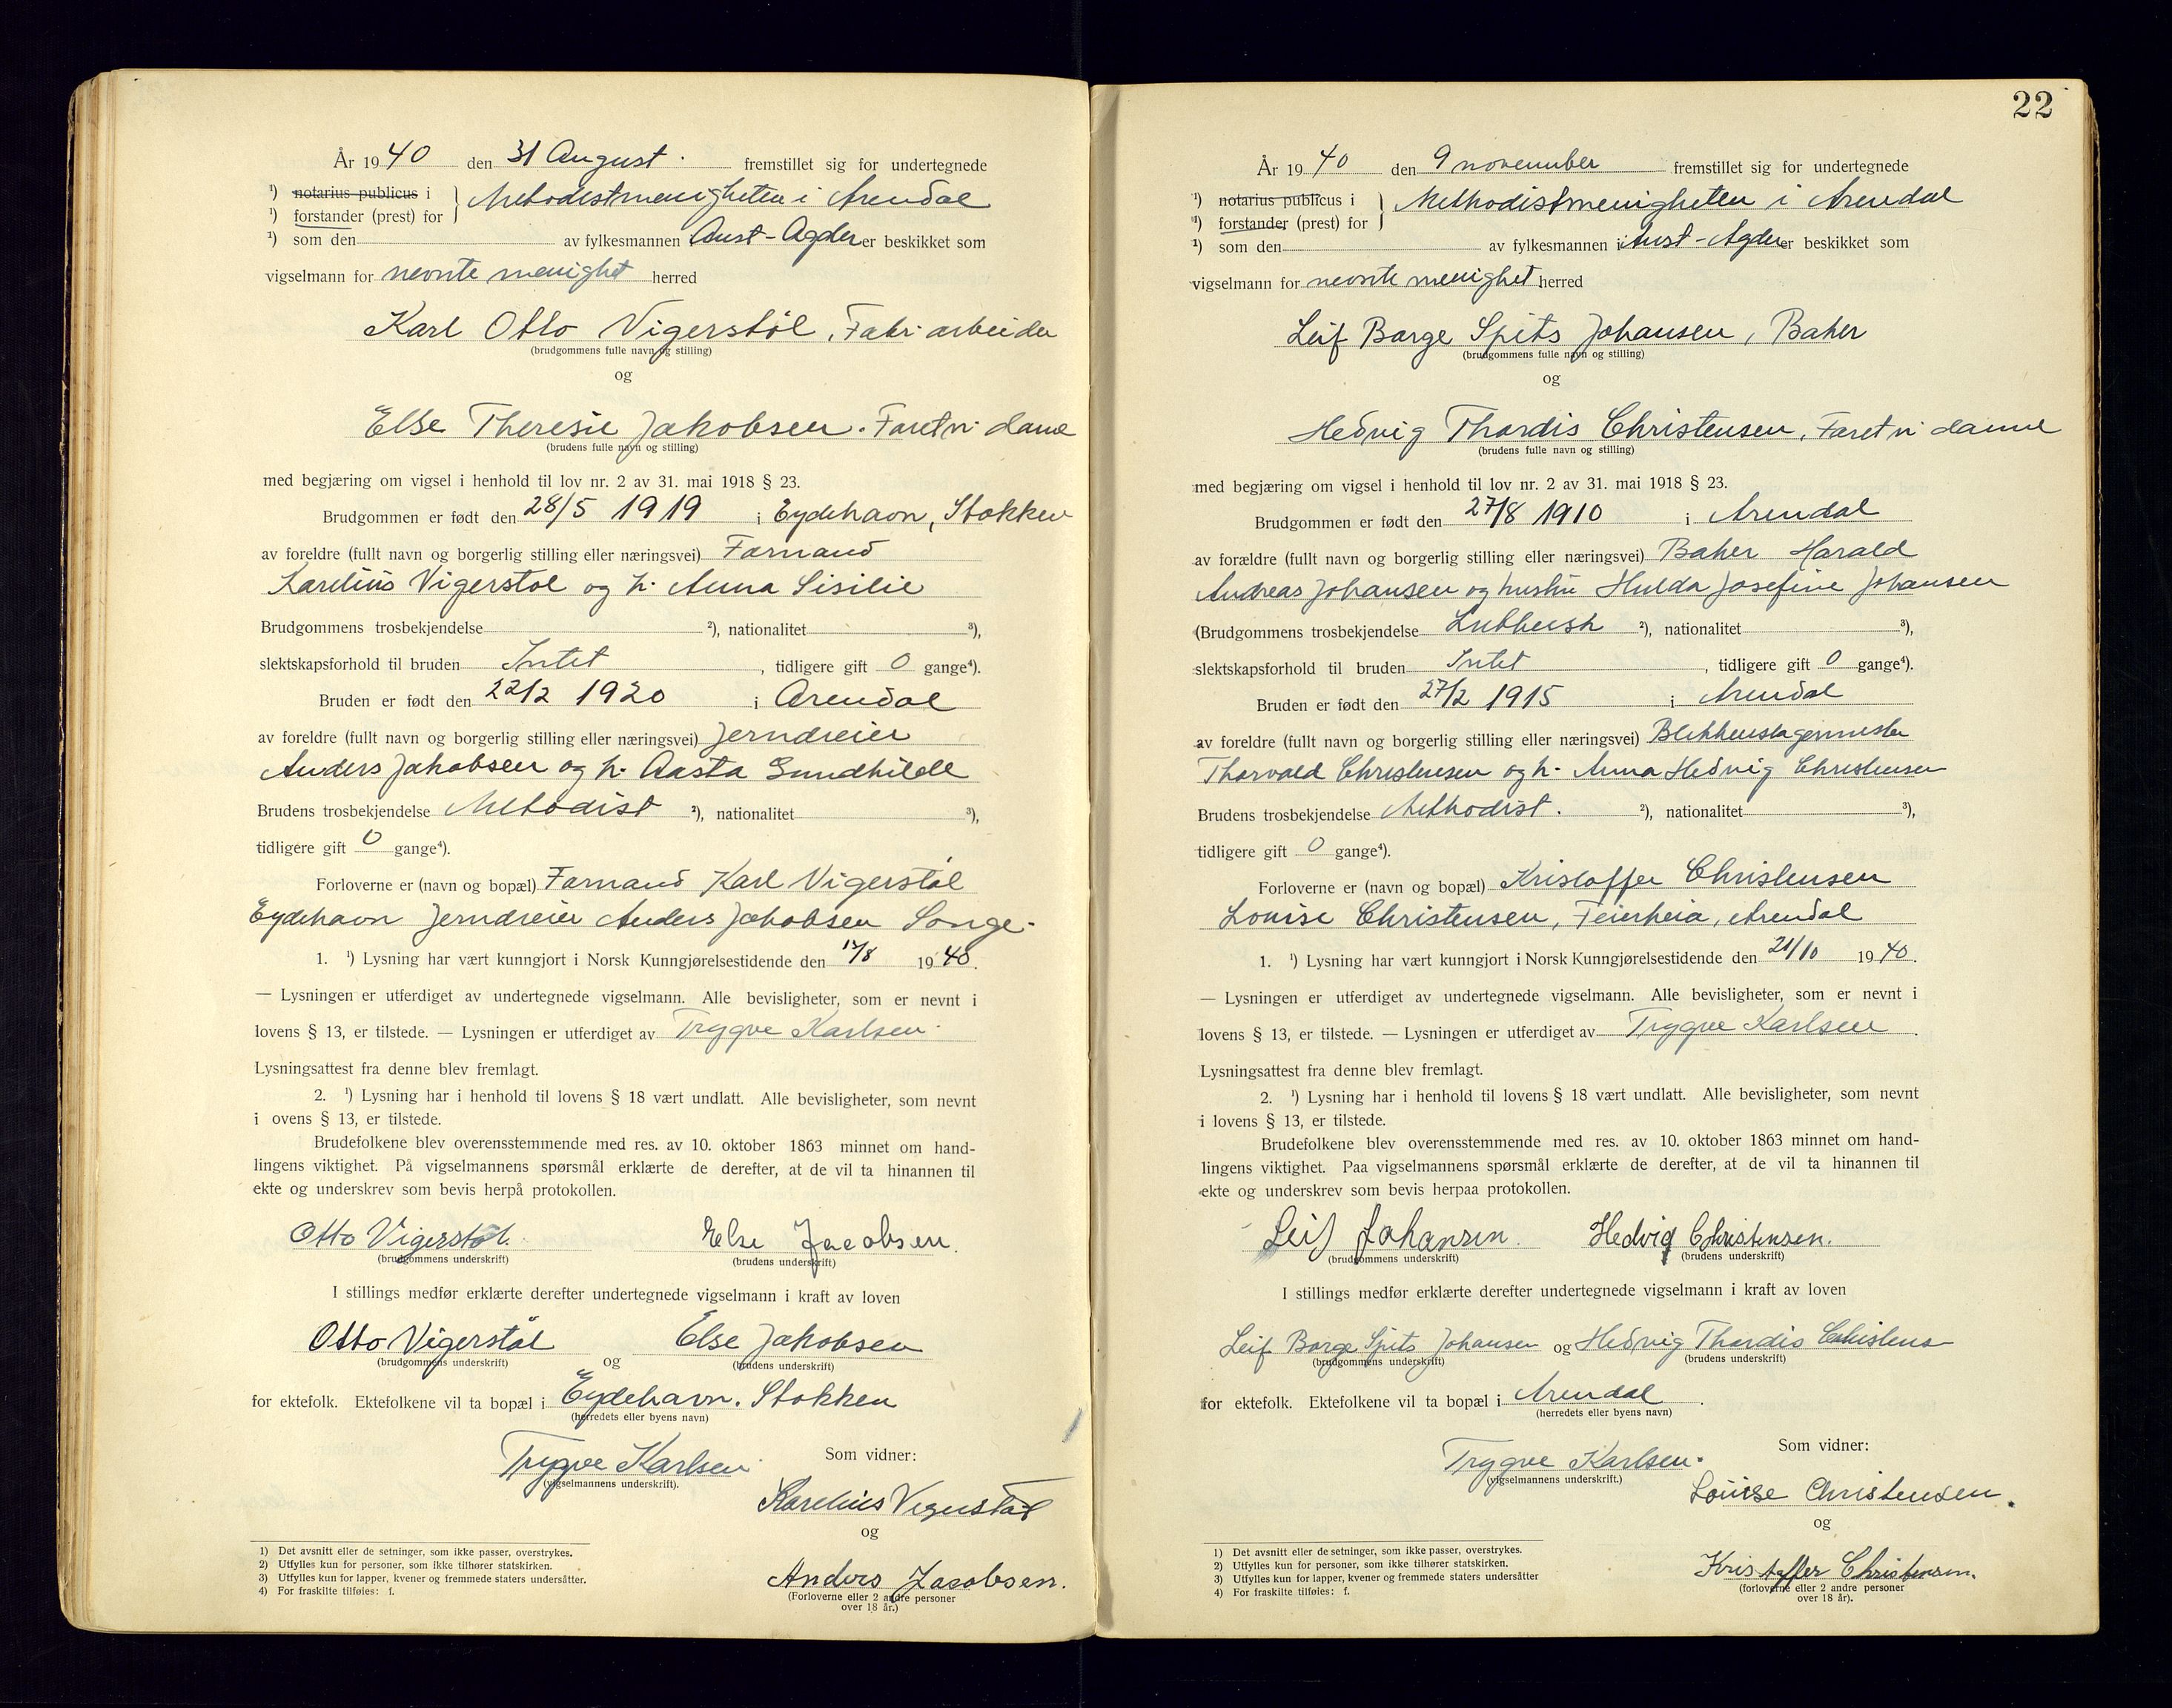 År 1940 den 31 August. fremstillet sig for undertegnede
¹) notarius publicus i
¹) forstander (prest) for } Metodistmenigheten i Arendal
¹) som den av fylkesmannen Aust-Agder er beskikket som
vigselmann for nevnte menighet herred
Karl Otto Vigerstøl, Fabr. arbeider
(brudgommens fulle navn og stilling)
og
Else Theresie Jakobsen. Foretn. dame
(brudens fulle navn og stilling)
med begjæring om vigsel i henhold til lov nr. 2 av 31. mai 1918 § 23.
Brudgommen er født den 28/5 1919 i Eydehavn, Stokken
av foreldre (fullt navn og borgerlig stilling eller næringsvei) Formand
Karelius Vigerstøl og h. Anna Sisilie
Brudgommens trosbekjendelse ²), nationalitet ³),
slektskapsforhold til bruden Intet, tidligere gift 0 gange⁴).
Bruden er født den 22/2 1920 i Arendal
av foreldre (fullt navn og borgerlig stilling eller næringsvei) Jerndreier
Anders Jakobsen og h. Aasta Gundhilde
Brudens trosbekjendelse Metodist ²), nationalitet ³),
tidligere gift 0 gange⁴).
Forloverne er (navn og bopæl) Formand Karl Vigerstøl
Eydehavn Jerndreier Anders Jakobsen Songe.
1. ¹) Lysning har vært kunngjort i Norsk Kunngjørelsestidende den /8 1940.
— Lysningen er utferdiget av undertegnede vigselmann. Alle bevisligheter, som er nevnt i
lovens § 13, er tilstede. — Lysningen er utferdiget av Trygve Karlsen.
Lysningsattest fra denne blev fremlagt.
2. ¹) Lysning har i henhold til lovens § 18 vært undlatt. Alle bevisligheter, som nevnt
i ovens § 13, er tilstede.
Brudefolkene blev overensstemmende med res. av 10. oktober 1863 minnet om hand-
lingens viktighet. På vigselmannens spørsmål erklærte de derefter, at de vil ta hinannen til
ekte og underskrev som bevis herpå protokollen.
Otto Vigerstøl. Else Jacobsen.
(brudgommens underskrift) (brudens underskrift)
I stillings medfør erklærte derefter undertegnede vigselmann i kraft av loven
Otto Vigerstøl og Else Jakobsen
(brudgommens underskrift) (brudens underskrift)
for ektefolk. Ektefolkene vil ta bopæl i Eydehavn. Stokken
(herredets eller byens navn)
Trygve Karlsen
(vigselmannens underskrift).
Som vidner:
Karelius Vigerstøl
og
Anders Jacobsen.
(Forloverne eller 2 andre personer
over 18 år.)
1) Det avsnitt eller de setninger, som ikke passer, overstrykes.
2) Utfylles kun for personer, som ikke tilhører statskirken.
3) Utfylles kun for lapper, kvener og fremmede staters undersåtter.
4) For fraskilte tilføies: f.
22
År 1940 den 9 november fremstillet sig for undertegnede
¹) notarius publicus i
¹) forstander (prest) for } Methodistmenigheten i Arendal
¹) som den av fylkesmannen i Aust-Agder er beskikket som
vigselmann for nevnte menighet herred
Leif Borge Spits Johansen, Baker
(brudgommens fulle navn og stilling)
og
Hedvig Thordis Christensen, Foretn. dame
(brudens fulle navn og stilling)
med begjæring om vigsel i henhold til lov nr. 2 av 31. mai 1918 § 23.
Brudgommen er født den 27/8 1910 i Arendal
av forældre (fullt navn og borgerlig stilling eller næringsvei) Baker Harald
Andreas Johansen og hustru Hulda Josefine Johansen
(Brudgommens trosbekjendelse Luthersk ²), nationalitet ³),
slektskapsforhold til bruden Intet, tidligere gift 0 gange⁴).
Bruden er født den 27/2 1915 i Arendal
av foreldre (fullt navn og borgerlig stilling eller næringsvei) Blikkenslagermester
Thorvald Christensen og h. Anna Hedvig Christensen
Brudens trosbekjendelse Methodist. ²), nationalitet ³),
tidligere gift 0 gange⁴).
Forloverne er (navn og bopæl) Kristoffer Christensen
Louise Christensen, Feierheia, Arendal
1. ¹) Lysning har vært kunngjort i Norsk Kunngjørelsestidende den 21/10 1940.
— Lysningen er utferdiget av undertegnede vigselmann. Alle bevisligheter, som er nevnt i
lovens § 13, er tilstede. — Lysningen er utferdiget av Trygve Karlsen.
Lysningsattest fra denne blev fremlagt.
2. ¹) Lysning har i henhold til lovens § 18 vært undlatt. Alle bevisligheter, som nevnt
i lovens § 13, er tilstede.
Brudefolkene blev overensstemmende med res. av 10. oktober 1863 minnet om hand-
lingens viktighet. Paa vigselmannens spørsmål erklærte de derefter, at de vil ta hinannen til
ekte og underskrev som bevis herpaa protokollen.
Leif Johansen. Hedvig Christensen.
(brudgommens underskrift) (brudens underskrift)
I stillings medfør erklærte derefter undertegnede vigselmann i kraft av loven
Leif Borge Spits Johansen og Hedvig Thordis Christens
(brudgommens underskrift) (brudens underskrift)
for ektefolk. Ektefolkene vil ta bopæl i Arendal.
(herredets eller byens navn)
Trygve Karlsen.
(vigselmannens underskrift.)
Som vidner:
Louise Christensen.
og
Kristoffer Christensen.
(forloverne eller 2 andre personer
over 18 år).
1) Det avsnitt eller de setninger, som ikke passer, overstrykes.
2) Utfylles kun for personer, som ikke tilhører statskirken.
3) Utfylles kun for lapper, kvener og fremmede staters undersåtter
4) For fraskilte tilføies: f.